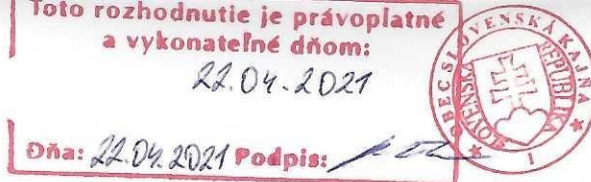 Toto rozhodnutie je právoplatné
a vykonateľné dňom:
22.04.2021
Dňa: 22.04.2021 Podpis:
OBEC SLOVENSKÁ KAJŇA
SLOVENSKÁ REPUBLIKA
1